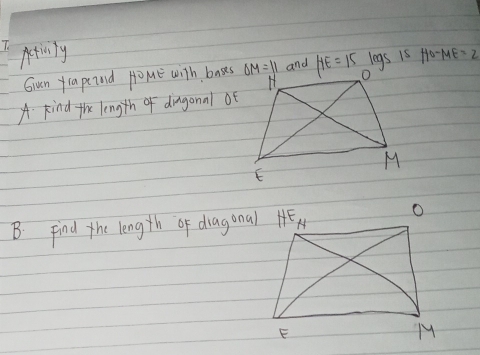 Activity
Given trapezoid HOME with bases OM=11 and HE=15 legs is HO-ME=2
A. Find the length of diagonal OE
H O
E M
B. Find the length of diagonal HE
H O
E M